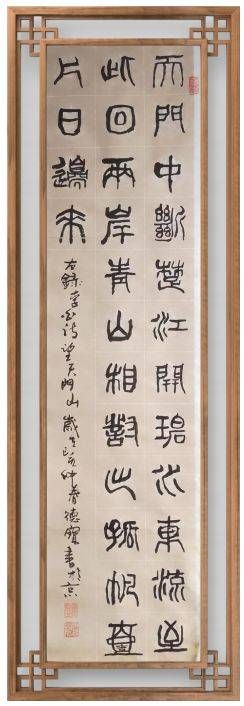 天門中斷楚江開碧水東流至
此回兩岸青山相對出孤帆壹
片日邊來
右錄李白詩望天門山歲在亥仲春德寶書於京